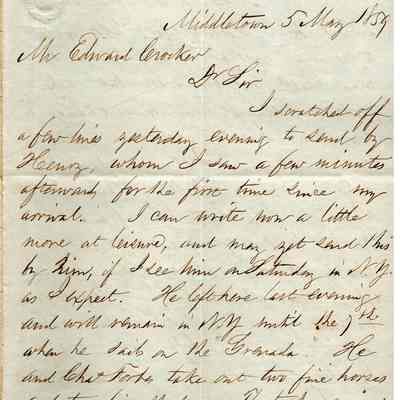 Middletown 5 May 1859
Mr Edward Crocker
Dr Sir
I scratched off
a few lines yesterday evening to send by
Henry, whom I saw a few minutes
afterwards for the first time since my
arrival. I can write now a little
more at leisure, and may yet send this
by him, if I see him on Saturday in N.Y.
as I expect. He left here last evening
and will remain in N.Y. until the 7th
when he sails on the "Grenada" He
and Chas Forbes take out two fine horses